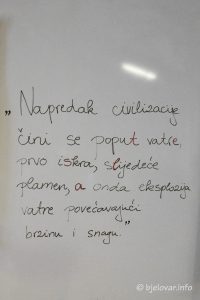 „Napredak civilizacije
čini se poput vatre,
prvo iskra, sljedeće
plamen, a onda eksplozija
vatre povećavajući
brzinu i snagu."
© bjelovar.info